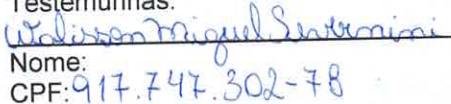 Testemunhas:
Walisson Miguel Severnini
Nome:
CPF: 917.747.302-78